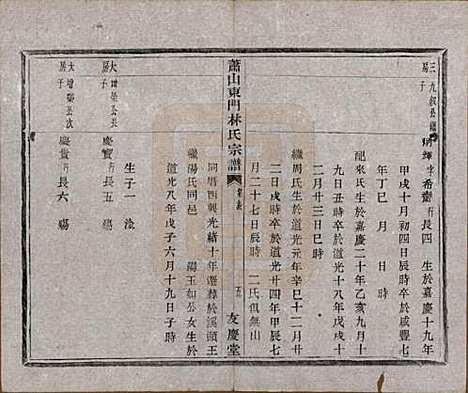 三房 九叙公繼子
炳輝 字希齋 行長四 生於嘉慶十九年
甲戌十月初四日辰時卒於咸豐七
年丁巳 月 日 時
配來氏生於嘉慶二十年乙亥九月十
九日丑時卒於道光十八年戊戌十
二月廿三日巳時
繼周氏生於道光元年辛巳十二月廿
二日戌時卒於道光廿四年甲辰七
月二十七日辰時 二氏俱無出
蕭山東門林氏宗譜
五
友慶堂
同曆四朝光緒十年遷葬於溪頭王
繼湯氏湯王如公女生於
道光八年戊子六月十九日子時
生子一 淦
大房 增榮公長子
慶寶 行長五 殤
大房 增榮公次子
慶貴 行長六 殤